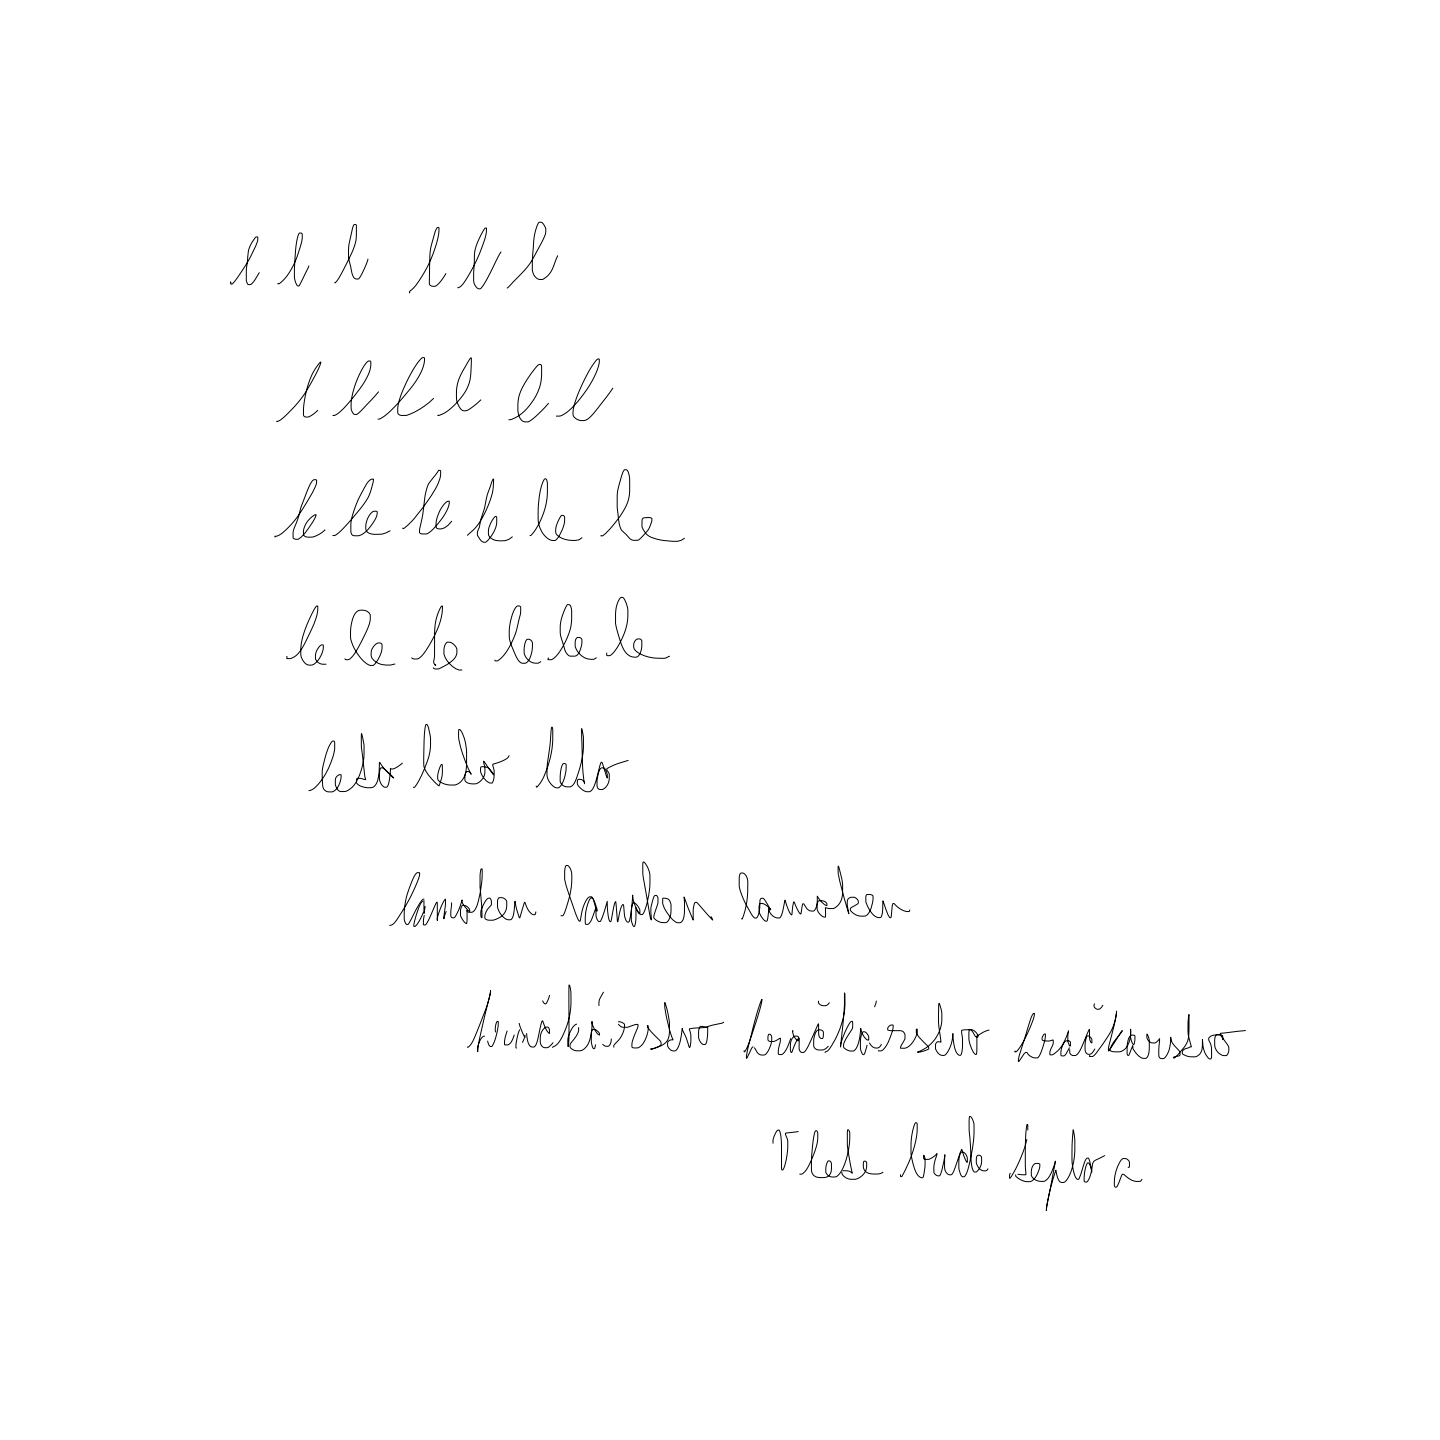 l l l l l l
l l l l l l
le le le le le le
le le le le le le
leto leto leto
lamoken lamoken lamoken
hračkárstvo hračkárstvo hračkarstvo
V lete bude teplo a